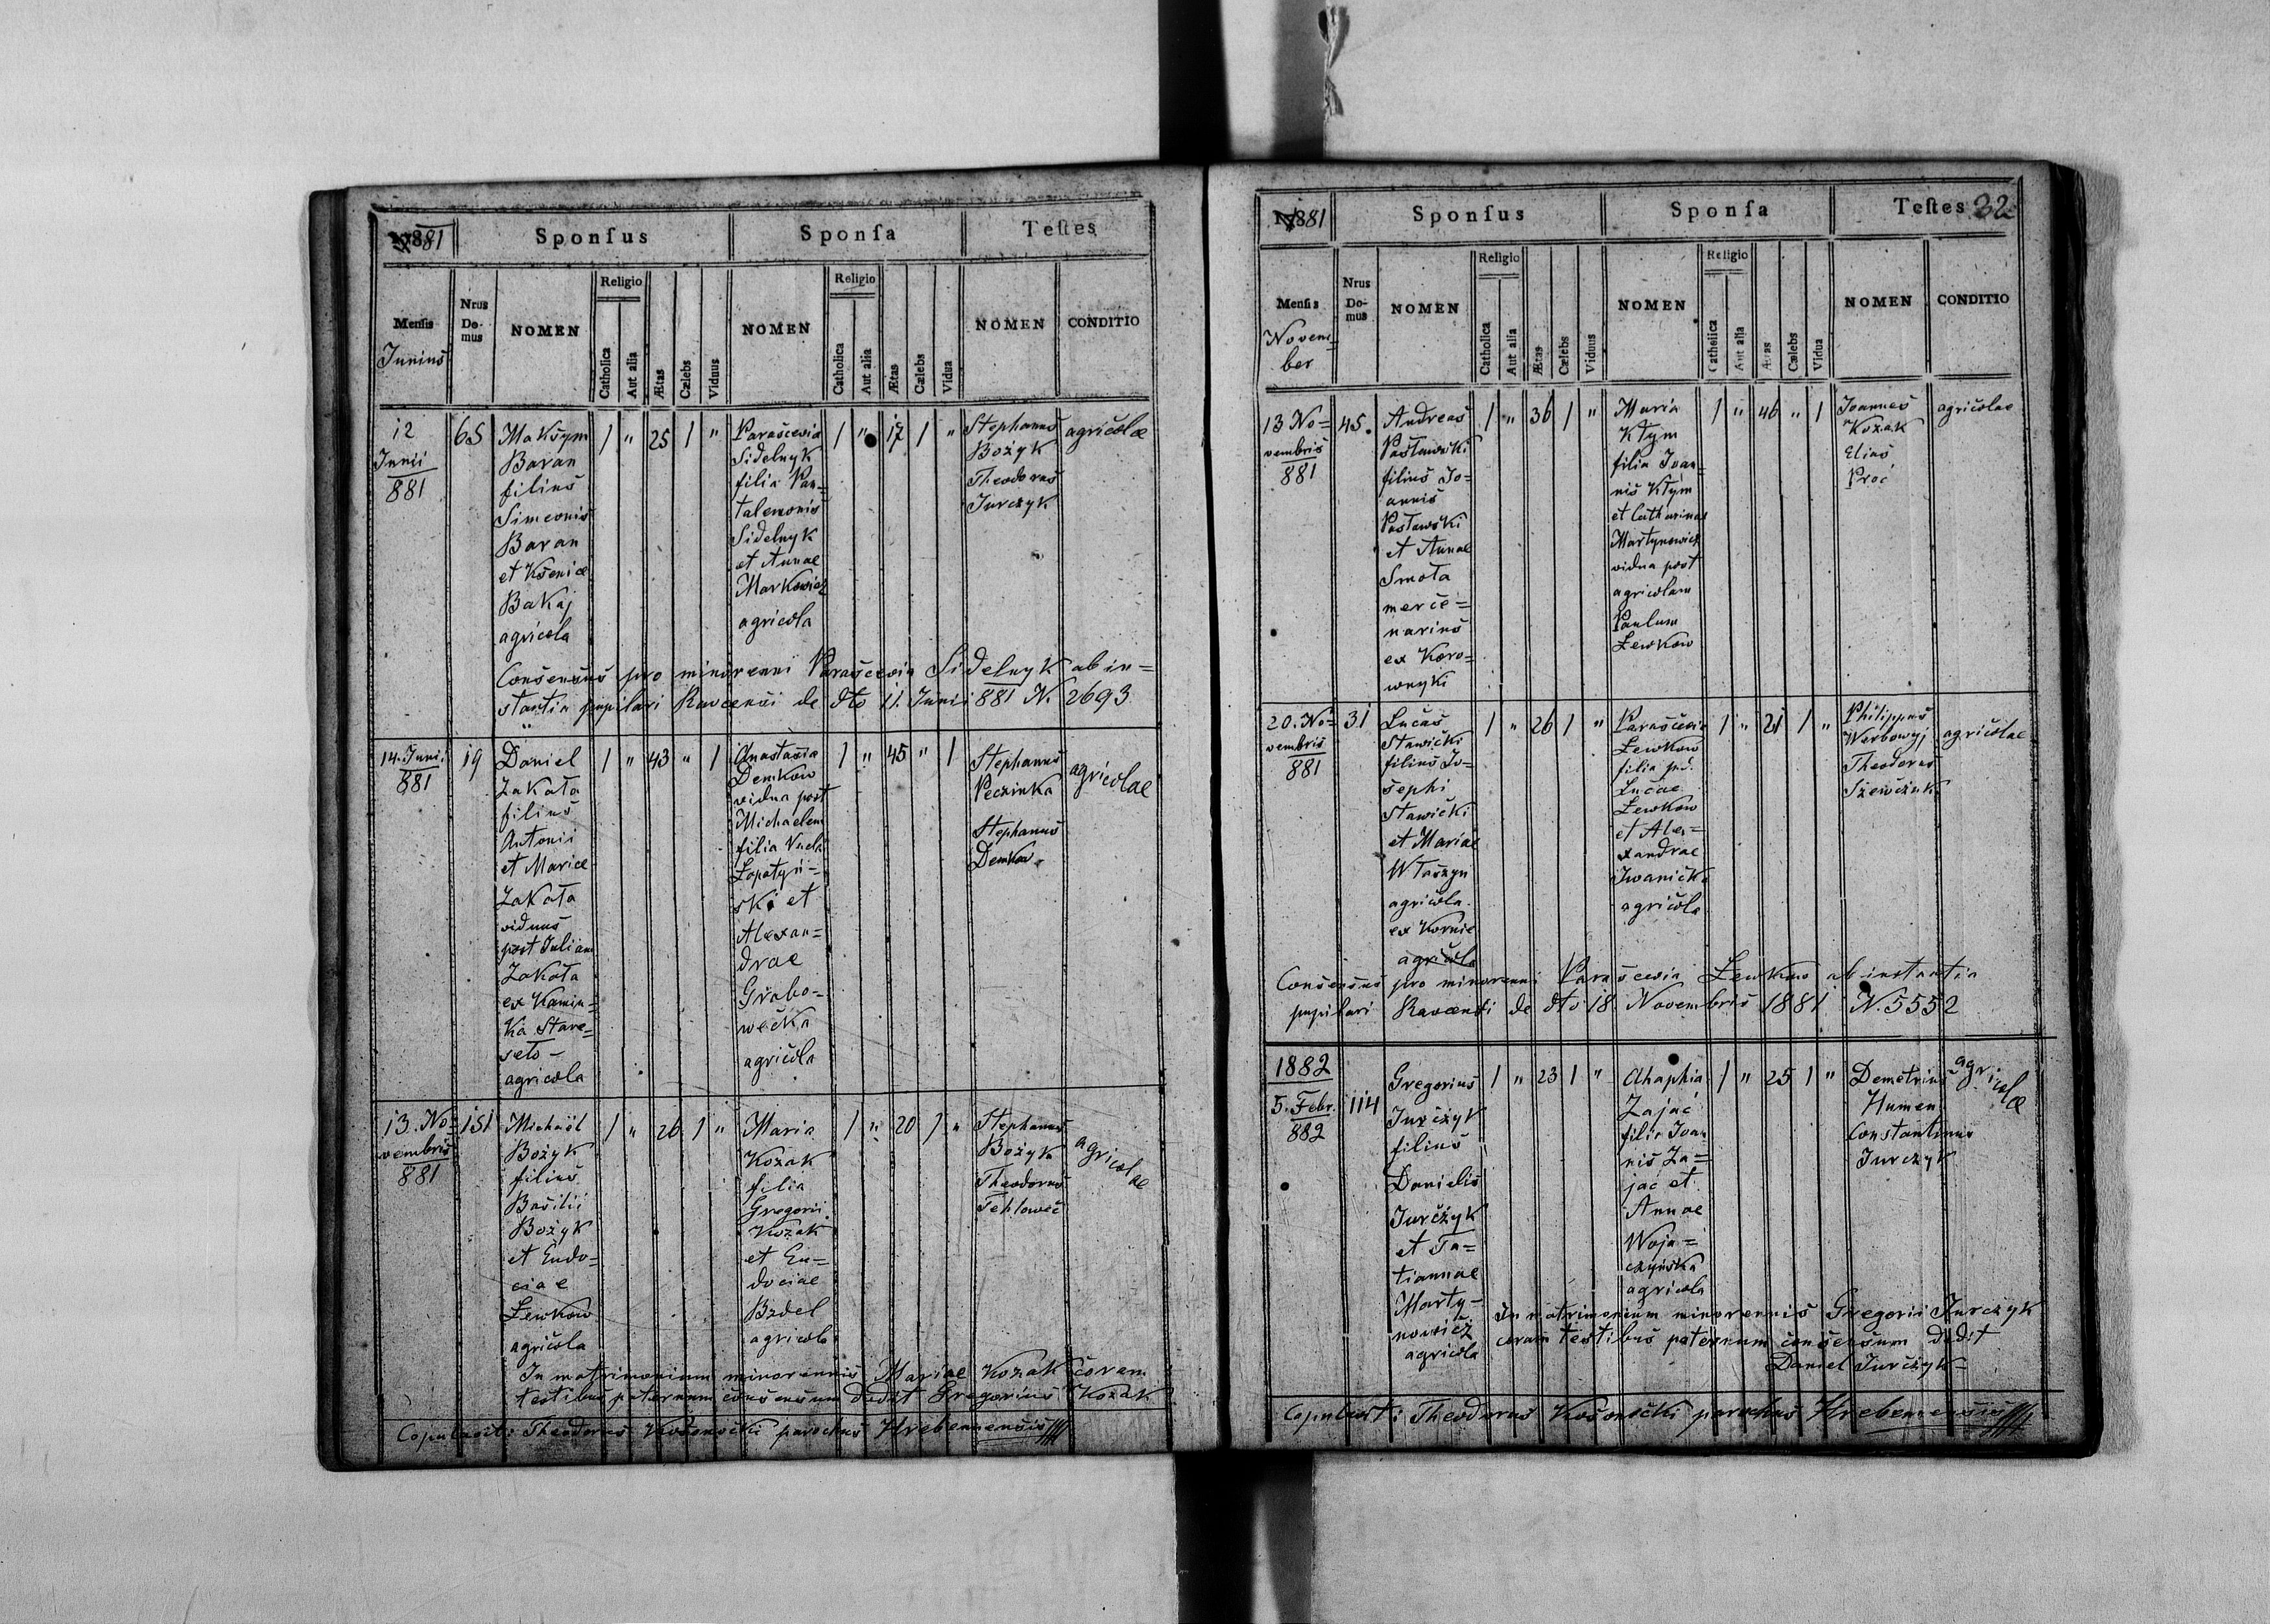 1881
Sponſus
Sponſa
Teſtes
Menſis
Junius
Nrus Do-mus
NOMEN
Religio
Catholica
Aut alia
Ætas
Cælebs
Viduus
NOMEN
Religio
Catholica
Aut alia
Ætas
Cælebs
Vidua
NOMEN
CONDITIO
12
Junii
881
65
Maksym
Baran
filius
Simeonis
Baran
et Kseniae
Bakaj
agricola
1 " 25 1 "
Parascevia
Sidelnyk
filia Pan=
taleonis
Sidelnyk
et Annae
Markowicz
agricola
1 " 17 1 "
Stephanus
Bożyk
Theodorus
Jurczyk
agricolae
Consensus pro minorenni Parascevia Sidelnyk ab in=
stantia pupilari Ravensi de dto 11. Junii 881 N. 2693
14. Junii
881
19
Daniel
Zakała
filius
Antonii
et Mariae
Zakała
viduus
post Julianam
Zakała
ex Kamin=
ka Stare=
seło -
agricola
1 " 43 " 1
Anastasia
Demkow
vidua post
Michaelem
filia
Łopatyń=
ski et
Alexan=
drae
Grabo-
wecka
agricola
1 " 45 " 1
Stephanus
Peczinka
Stephanus
Demkow
agricolae
13. No=
vembris
881
151
Michaël
Bożyk
filius
Basilii
Bożyk
et Eudo=
ciae
Lewkow
agricola
1 " 26 1 "
Maria
Kozak
filia
Gregorii
Kozak
et Eu=
dociae
Bzdel
agricola
1 " 20 1 "
Stephanus
Bożyk
Theodorus
Tehlowec
agricolae
In matrimonium minorennis Mariae Kozak coram
testibus paternum consensum dedit Gregorius Kozak
Copulavit: Theodorus Kosonocki parochus Hrebennensis
1881
Sponſus
Sponſa
Teſtes
32
Menſis
Novem=
ber
Nrus Do-mus
NOMEN
Religio
Catholica
Aut alia
Ætas
Cælebs
Viduus
NOMEN
Religio
Catholica
Aut alia
Ætas
Cælebs
Vidua
NOMEN
CONDITIO
13 No=
vembris
881
45.
Andreas
Pasławski
filius Jo=
annis
Pasławski
et Annae
Smoła
merce=
narius
ex Koro=
wnyki
1 " 36 1 "
Maria
Kłym
filia Joan=
nis Kłym
et Catharinae
Martynowicz
vidua post
agricolam
Paulum
Lewkow
1 " 46 " 1
Joannes
Kozak
Elias
Proć
agricolae
20. No=
vembris
881
31
Lucas
Stawicki
filius Jo=
sephi
Stawicki
et Mariae
Właszyn
agricola
ex Kornie
agricola
1 " 26 1 "
Parascevia
Lewkow
filia
Lucae
Lewkow
et Alex=
xandrae
Iwanicka
agricola
1 " 21 1 "
Philippus
Werbowyj
Theodorus
Szewczuk
agricolae
Consensus pro minorenni Parascevia Lewkow ab instantia
pupilari Ravensi de dto 18. Novembris 1881 N. 5552
1882
5. Febr.
882
114
Gregorius
Jurczyk
filius
Danielis
Jurczyk
et Ta=
tiannae
Marty-
nowicz
agricola
1 " 23 1 "
Ahaphia
Zając
filia Joan
nis Za=
jac et
Annae
Woja=
czyńska
agricola
1 " 25 1 "
Demetrius
Humen
Constantinus
Jurczyk
agricolae
In matrimonium minorennis Gregorii Jurczyk
coram testibus paternum consensum dedit
Daniel Jurczyk=
Copulavit: Theodorus Kosonocki parochus Hrebennensis